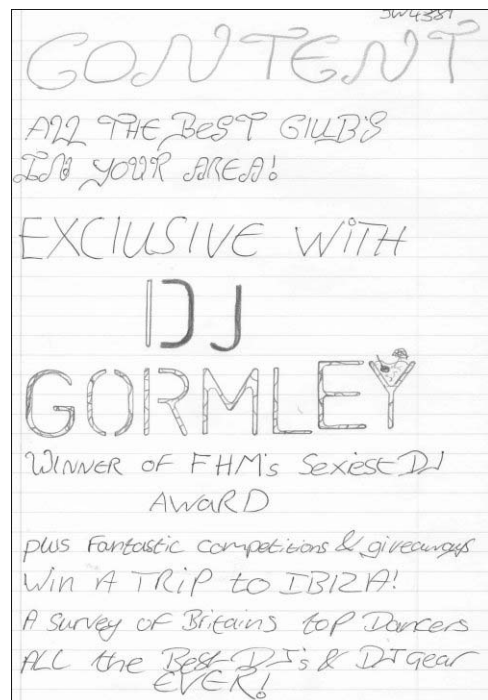 JW4381
CONTENT
ALL THE BEST CLUB'S
IN YOUR AREA!
EXCLUSIVE WITH
DJ
GORMLEY
WINNER OF FHM's SexiEst DJ
AWARD
plus Fantastic competitions & giveaways
Win A TRiP to IBIZA!
A survey of Britains top Dancers
ALL the Best DJ's & DJ gear
EVER!